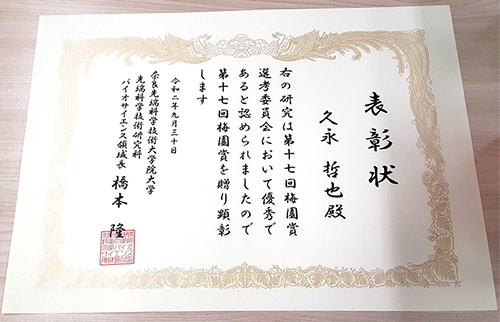 表彰状
久永 哲也 殿
右の研究は第十七回梅園賞
選考委員会において優秀で
あると認められましたので
第十七回梅園賞を贈り顕彰
します
令和二年九月三十日
奈良先端科学技術大学院大学
先端科学技術研究科
バイオサイエンス領域長 橋本 隆